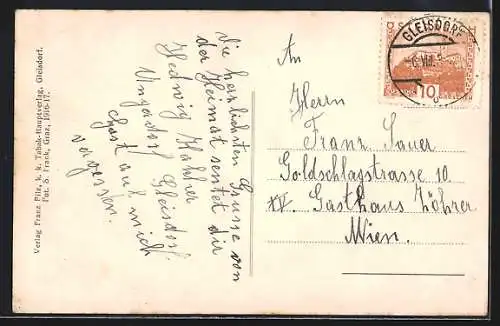 Verlag Franz Pilz, k. k. Tabak-Hauptverlag, Gleisdorf.
Pat. S. Frank, Graz, 1916-17.
Die herzlichsten Grüsse von
der Heimat sentet dir
Hedwig
Ungadorf Gleisdorf
hast auf mich
vagessen.
GLEISDORF
10
An
Herrn
Franz Sauer
Goldschlagstrasse 10
XV. Gasthaus Zöhrer
Wien.